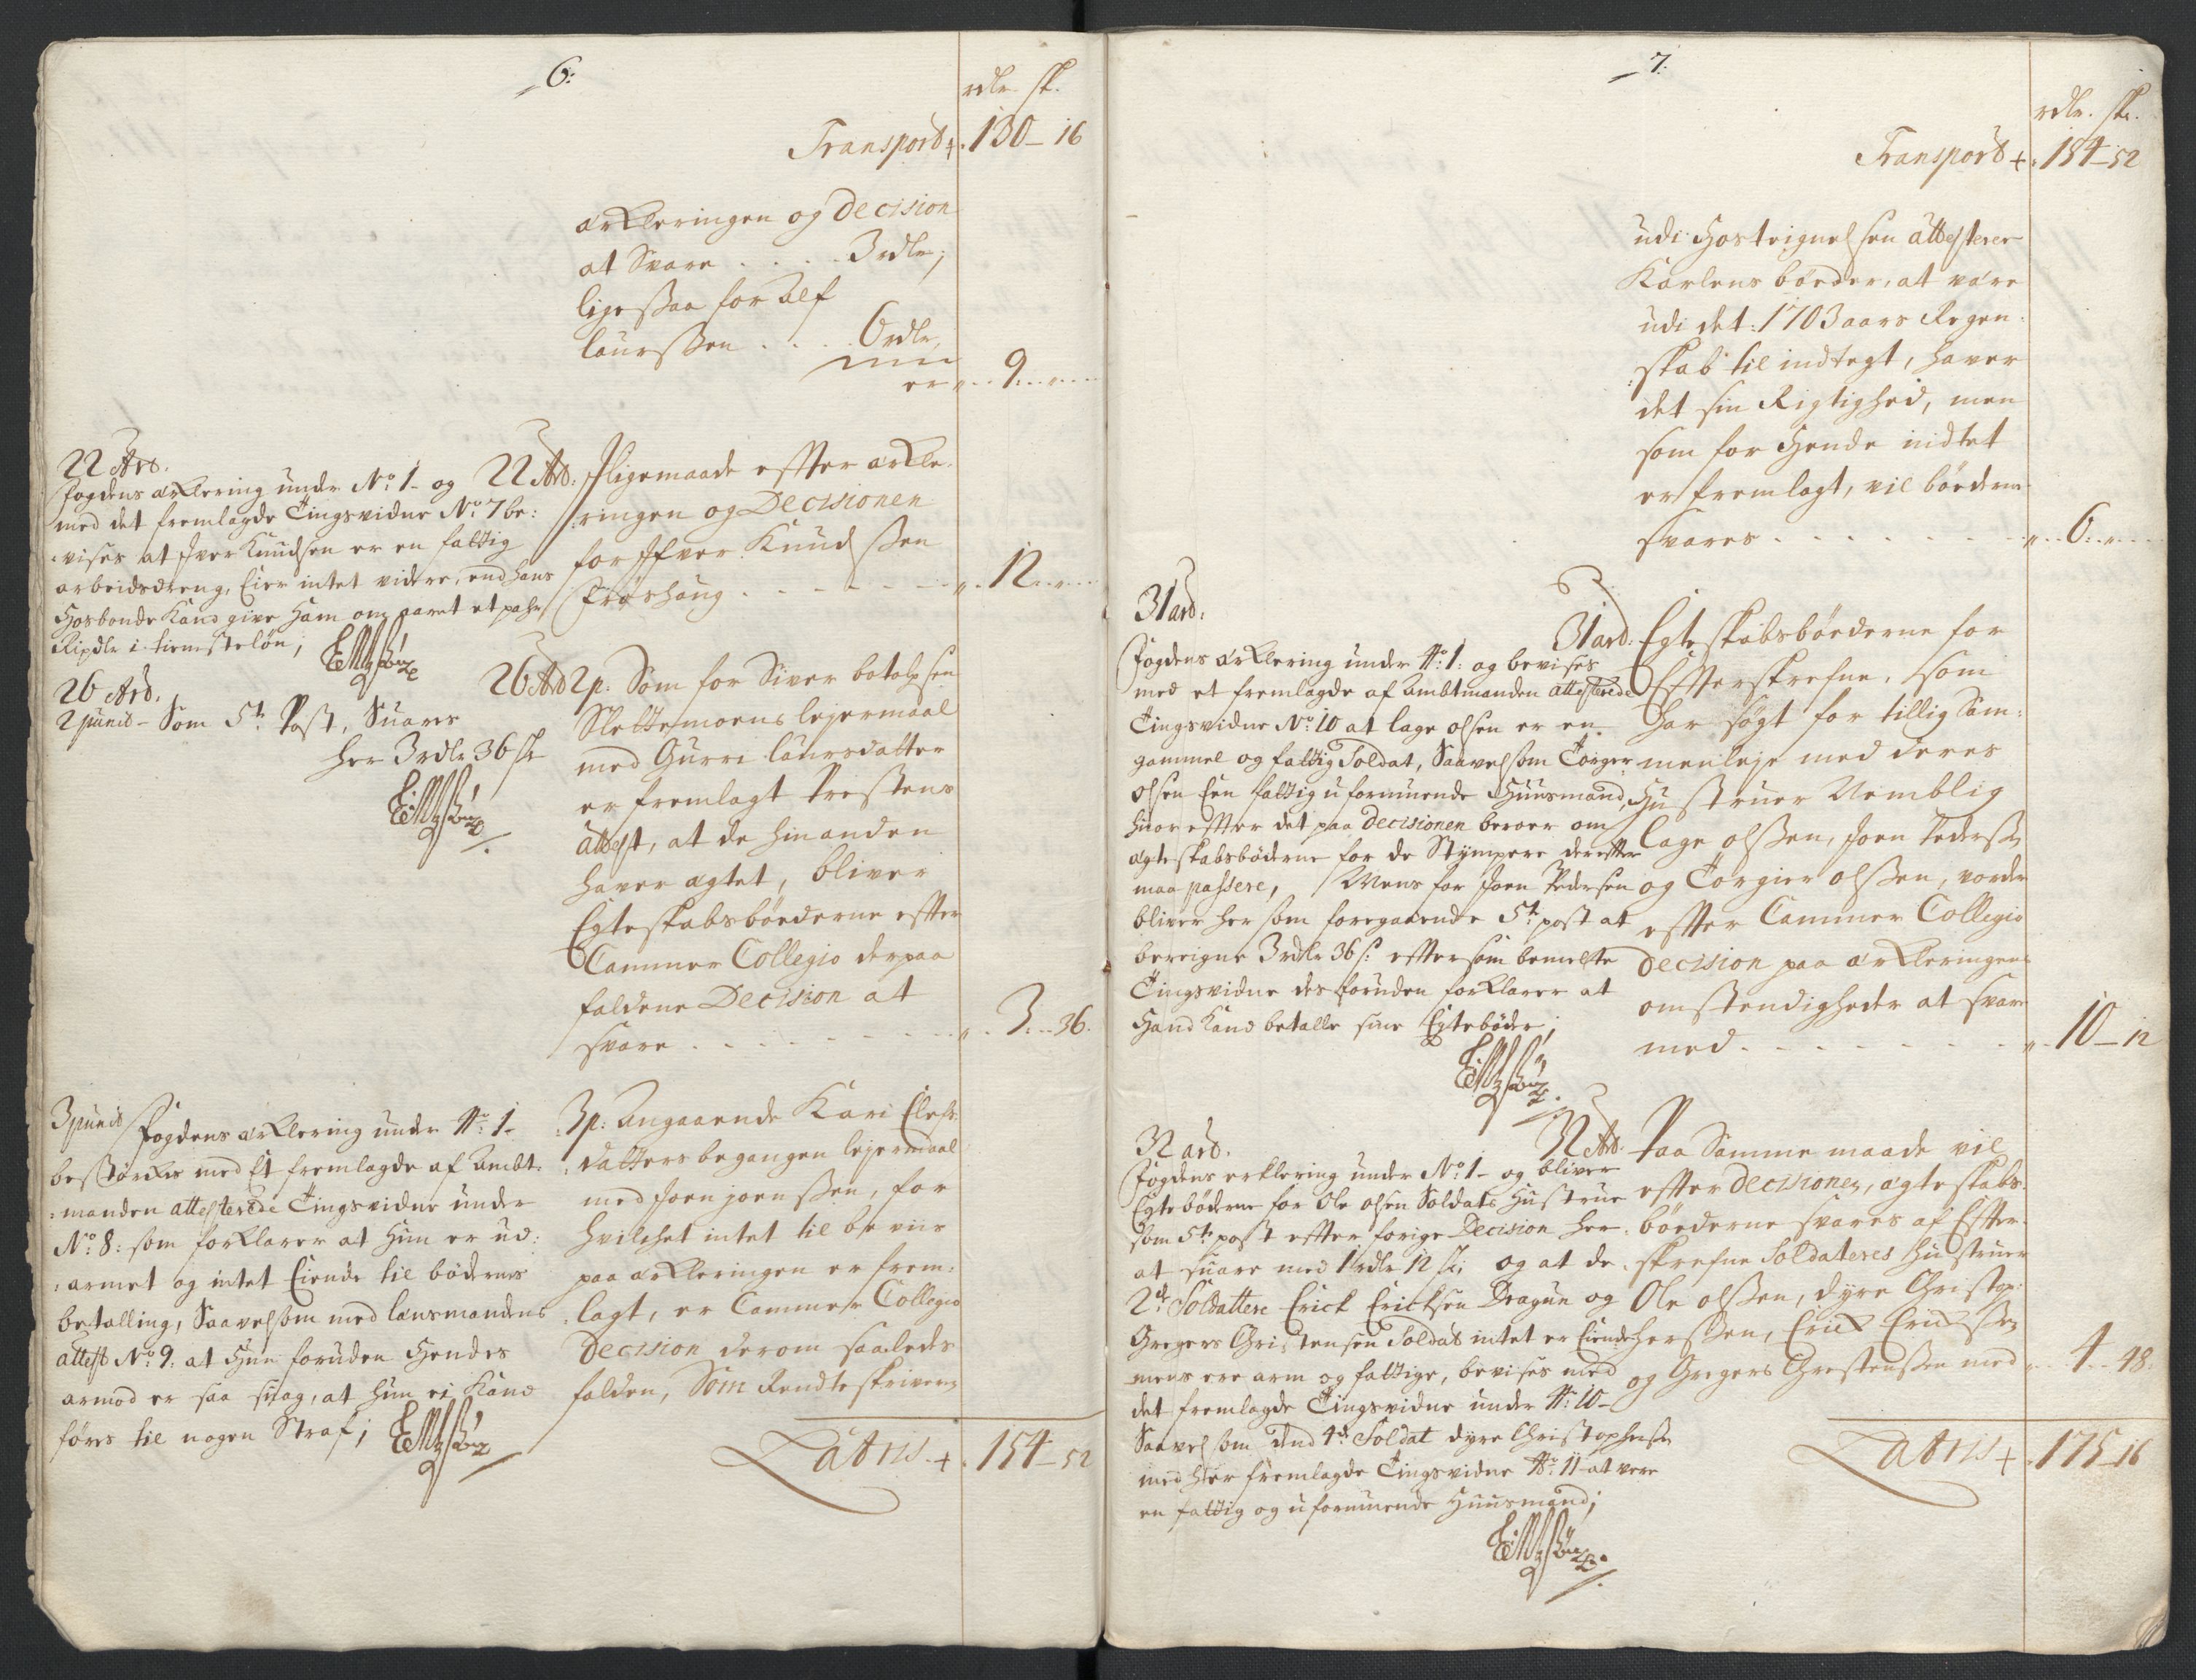 6:
rdlr. sk.
Transport + 130 – 16
erkleringen og Decision
at Svare . . . . 3 rdlr;
ligessaa for Alf
laurssen . . . . 6 rdlr,
er „ . . 9 . . „
22 Art.
Fogdens erklering under No. 1 – og
med det fremlagde Tingsvidne No. 7 be:
:vises at Iver Knudsen er en fattig
arbeidsdreng, Eier intet videre, end hans
Hosbonde kand give ham om aaret et pahr
Ripdlr i tienisteløn;
22 Art: Iligemaade effter erkle:
:ringen og Decisionen
for Iffver Knudssen
Trøshaug . . . . „ . . 12 . . „
26 Art.
2 punct – Som 5te Post, Suares
her 3 rdlr 36 sk
26 Art 2 p: Som for Siver botolpsen
Slettemoens lejermaal
med Gurre laursdatter
er fremlagt Prestens
attest, at de hinanden
haver ægtet, bliver
Egteskabsbøederne effter
Cammer Collegio derpaa
faldene Decision at
svare . . . . „ . . 3 . . 36.
3 punct Fogdens erklering under No. 1 –
bestørkes med Et fremlagde af Ambt:
:manden attesterede Tingsvidne under
No. 8: som forklarer at Hun er ud:
:armet og intet Eiende til bødernes
betalling, Saavelsom med lænsmandens
attest No. 9: at Hun foruden Hendes
armod er saa suag, at hun ei kand
føres til nogen Straf;
3 p: Angaaende Kari Elefs:
:datters begangen lejermaal
med Joen joenssen, for
hvilchet intet til beviis
paa erkleringen er frem:
:lagt, er Cammer Collegio
Decision derom saaledes
falden, Som Rendteskriveren
Latris + 154 – 52
7.
rdlr. sk.
Transport + 154 – 52
udi Hosteignelsen attesterer
Karlens bøeder, at være
udi det: 1703 aars Regen:
:skab til indtegt, haver
det sin Rigtighed, men
som for Hende indtet
er fremlagt, vil bøederne
svares . . . . „ . . 6 . . „
31 art.
Fogdens erklering under No. 1: og bevises
med et fremlagde af Ambtmanden attesterede
Tingsvidne No. 10 at lage olsen er en
gammel og fattig Soldat, Saavelsom Torger
olsen Een fattig uformuende Huusmand,
huor effter det paa Decisionen beroer om
egteskabsbøderne for de Stympere dereffter
maa passere, Mens for Joen Pedersen
bliver her som foregaaende 5te post at
bereigne 3 rdlr 36 s: efftersom bemelte
Tingsvidne desforuden forklarer at
Hand kand betalle sine Egtebøder;
31 art: Egteskabsbøederne for
Effterskrefne, som
har søgt for tillig Sam:
menleje med deres
Hustruer Nemblig
lage olssen, Joen Pederss
og Torgier olssen, vorder
effter Cammer Collegio
Decision paa erkleringens
omstendigheder at svare
med . . . . „ . . 10 – 12
32 art.
Fogdens erklering under No. 1 – og bliver
Egtebøderne for Ole olsen Soldats Hustrue
som 5te post effter forige Decision her
at suare med 1 rdlr 12 sk; og at de
2de Soldattere Erick Ericksen Dragun og
Gregers Christensen Soldat intet er Eiende
mens ere arm og fattige, bevises med
det fremlagde Tingsvidne under No. 10 –
Saavelsom dend 4de Soldat dyre Christophersn
med her fremlagde Tingsvidne No. 11 at vere
en fattig og uformuende Huusmand;
32 Art. Paa Samme maade vil
effter Decisionen, egteskabs:
:bøederne svares af Effter:
:skrefne Soldateres Hustruer
Ole olssen, dyre Christop:
herssen, Erick Ericssen
og Gregers Chrestenssen med „ . . 4 . . 48.
Latris + 175 – 16